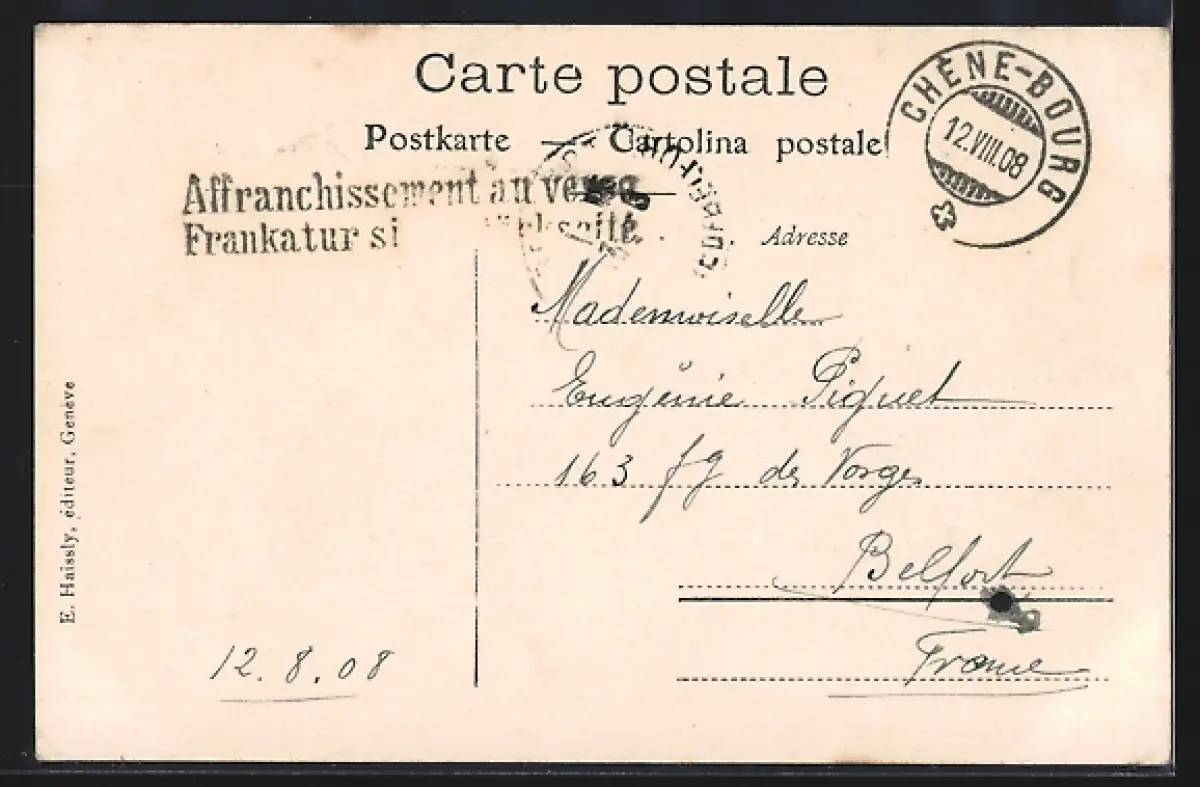 Carte postale
Postkarte — Cartolina postale
CHÊNE-BOURG
12.VIII.08
Affranchissement au verso
Frankatur si
Adresse
Mademoiselle
Eugénie Piquet
163 fg des Vosges
Belfort
France
12.8.08
E. Haissly, éditeur, Genève